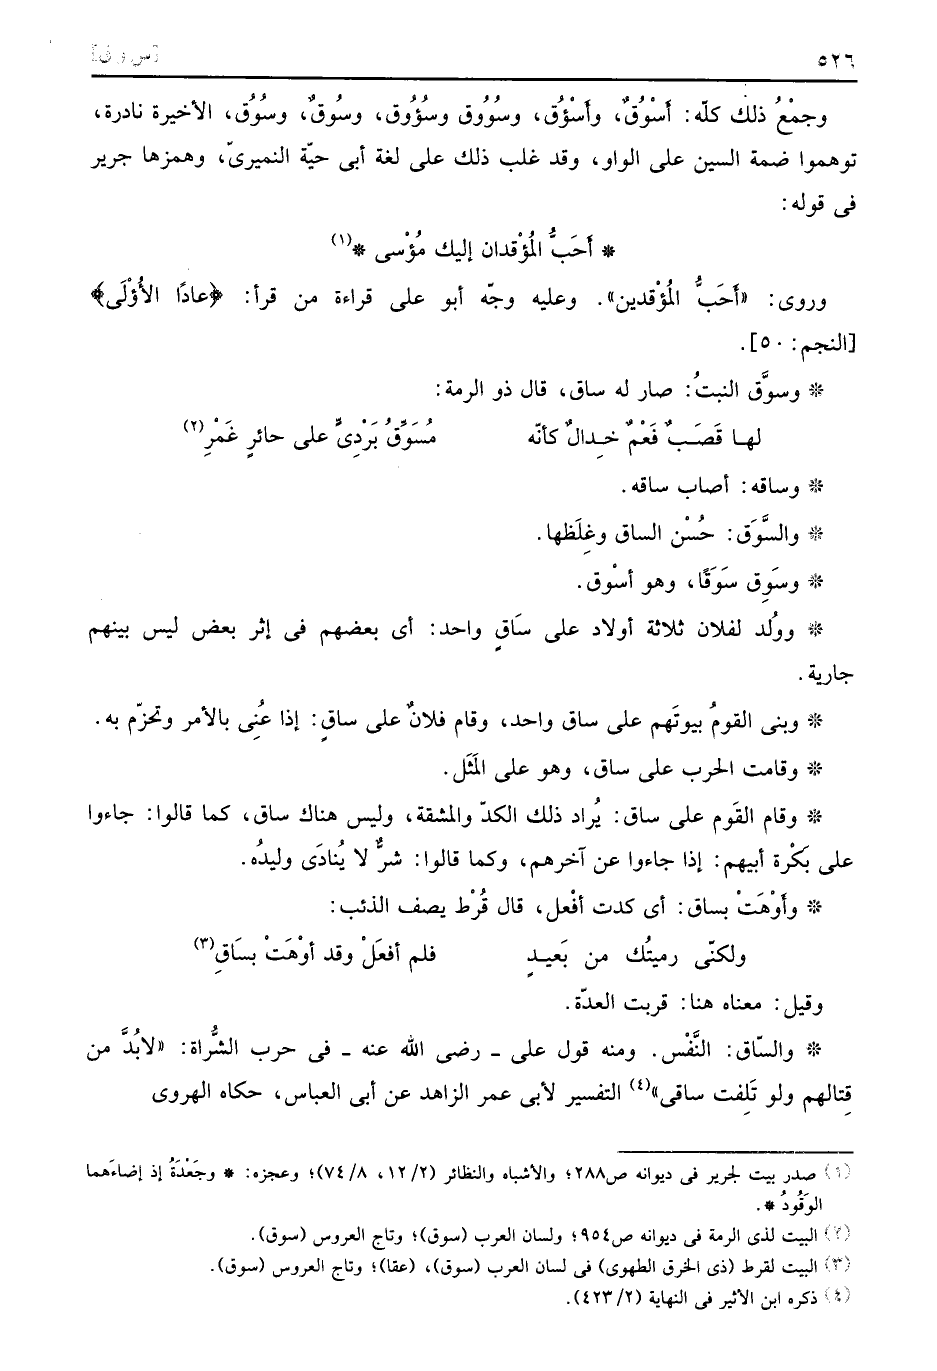 ٥٢٦ [س و ق]
وجمْعُ ذلك كلّه: أَسْوُقٌ، وأَسْؤُق، وسُوُوق وسُؤُوق، وسُوقٌ، وسُوُق، الأخيرة نادرة،
توهموا ضمة السين على الواو، وقد غلب ذلك على لغة أبى حيّة النميرىّ، وهمزها جرير
فى قوله:
* أَحَبُّ المُؤْقدان إليك مُؤْسى *(١)
وروى: «أَحَبُّ المُؤْقدين». وعليه وجّه أبو على قراءة من قرأ: ﴿عادًا الأُؤْلَى﴾
[النجم: ٥٠].
* وسوَّق النبتُ: صار له ساق، قال ذو الرمة:
لهـا قَصَـبٌ فَعْمٌ خِـدالٌ كأنّه مُسَوِّقُ بَرْدِىٍّ على حائرٍ غَمْرِ(٢)
* وساقه: أصاب ساقه.
* والسَّوَق: حُسْن الساق وغِلَظها.
* وسَوِق سَوَقًا، وهو أسْوق.
* ووُلد لفلان ثلاثة أولاد على سَاقٍ واحد: أى بعضهم فى إثر بعض ليس بينهم
جارية.
* وبنى القومُ بيوتَهم على ساق واحد، وقام فلانٌ على ساقٍ: إذا عُنِى بالأمر وتحزّم به.
* وقامت الحرب على ساق، وهو على المَثَل.
* وقام القَوم على ساق: يُراد ذلك الكدّ والمشقة، وليس هناك ساق، كما قالوا: جاءوا
على بَكْرة أبيهم: إذا جاءوا عن آخرهم، وكما قالوا: شرٌّ لا يُنادَى وليدُه.
* وأَوْهَتْ بساق: أى كدت أفْعل، قال قُرْط يصف الذئب:
ولكنّى رميتُك من بَعيـدٍ فلم أفعَلْ وقد أوْهَتْ بسَاقِ(٣)
وقيل: معناه هنا: قربت العدّة.
* والسّاق: النَّفْس. ومنه قول على ـ رضى الله عنه ـ فى حرب الشُّراة: «لابُدَّ من
قِتالهم ولو تَلِفت ساقى»(٤) التفسير لأبى عمر الزاهد عن أبى العباس، حكاه الهروى
(١) صدر بيت لجرير فى ديوانه ص٢٨٨؛ والأشباه والنظائر (١٢/٢، ٧٤/٨)؛ وعجزه: * وجَعْدَةُ إذ إضاءَهما
الوَقُودُ *.
(٢) البيت لذى الرمة فى ديوانه ص٩٥٤؛ ولسان العرب (سوق)؛ وتاج العروس (سوق).
(٣) البيت لقرط (ذى الخرق الطهوى) فى لسان العرب (سوق)، (عقا)؛ وتاج العروس (سوق).
(٤) ذكره ابن الأثير فى النهاية (٤٢٣/٢).